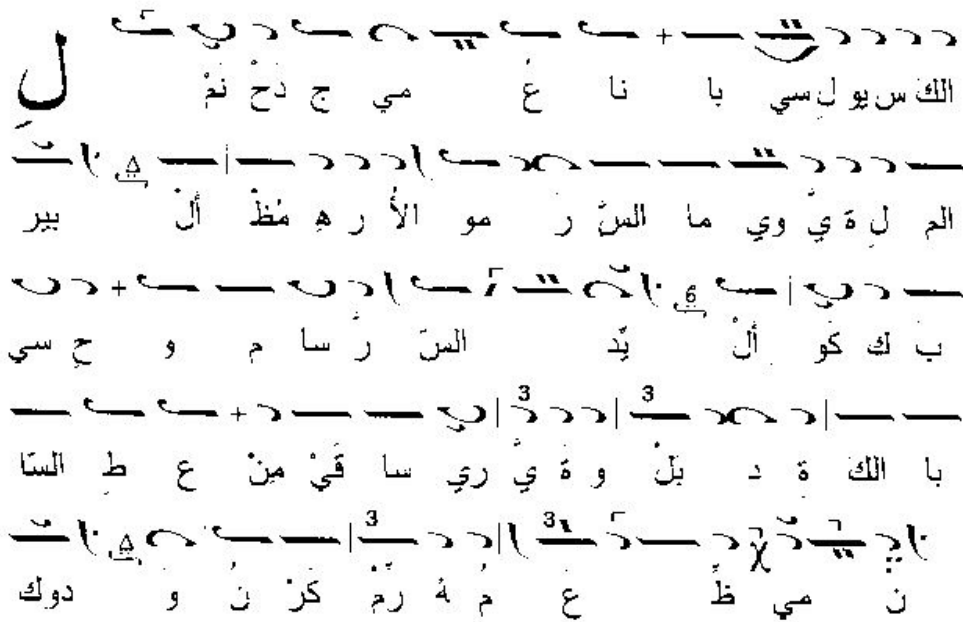 لِ نَمْ دَحْ ج مي عُ نا با سي لِ يو س الكَ
بير أَلْ مُظْ هِ ر الأُ مو رَ السَّ ما وي يَّ ةَ لِ الم
سي حِ و م سا رَّ السّ يِّد أَلْ كَوْ كَ بَ
السّا طِ ع مِنْ قَيْ سا ري يَّ ةَ و بَلْ د ةِ الكَ با
دوك وَ نُ كَرْ رِّمْ هُ مُ عَ ظِّ مي نَ